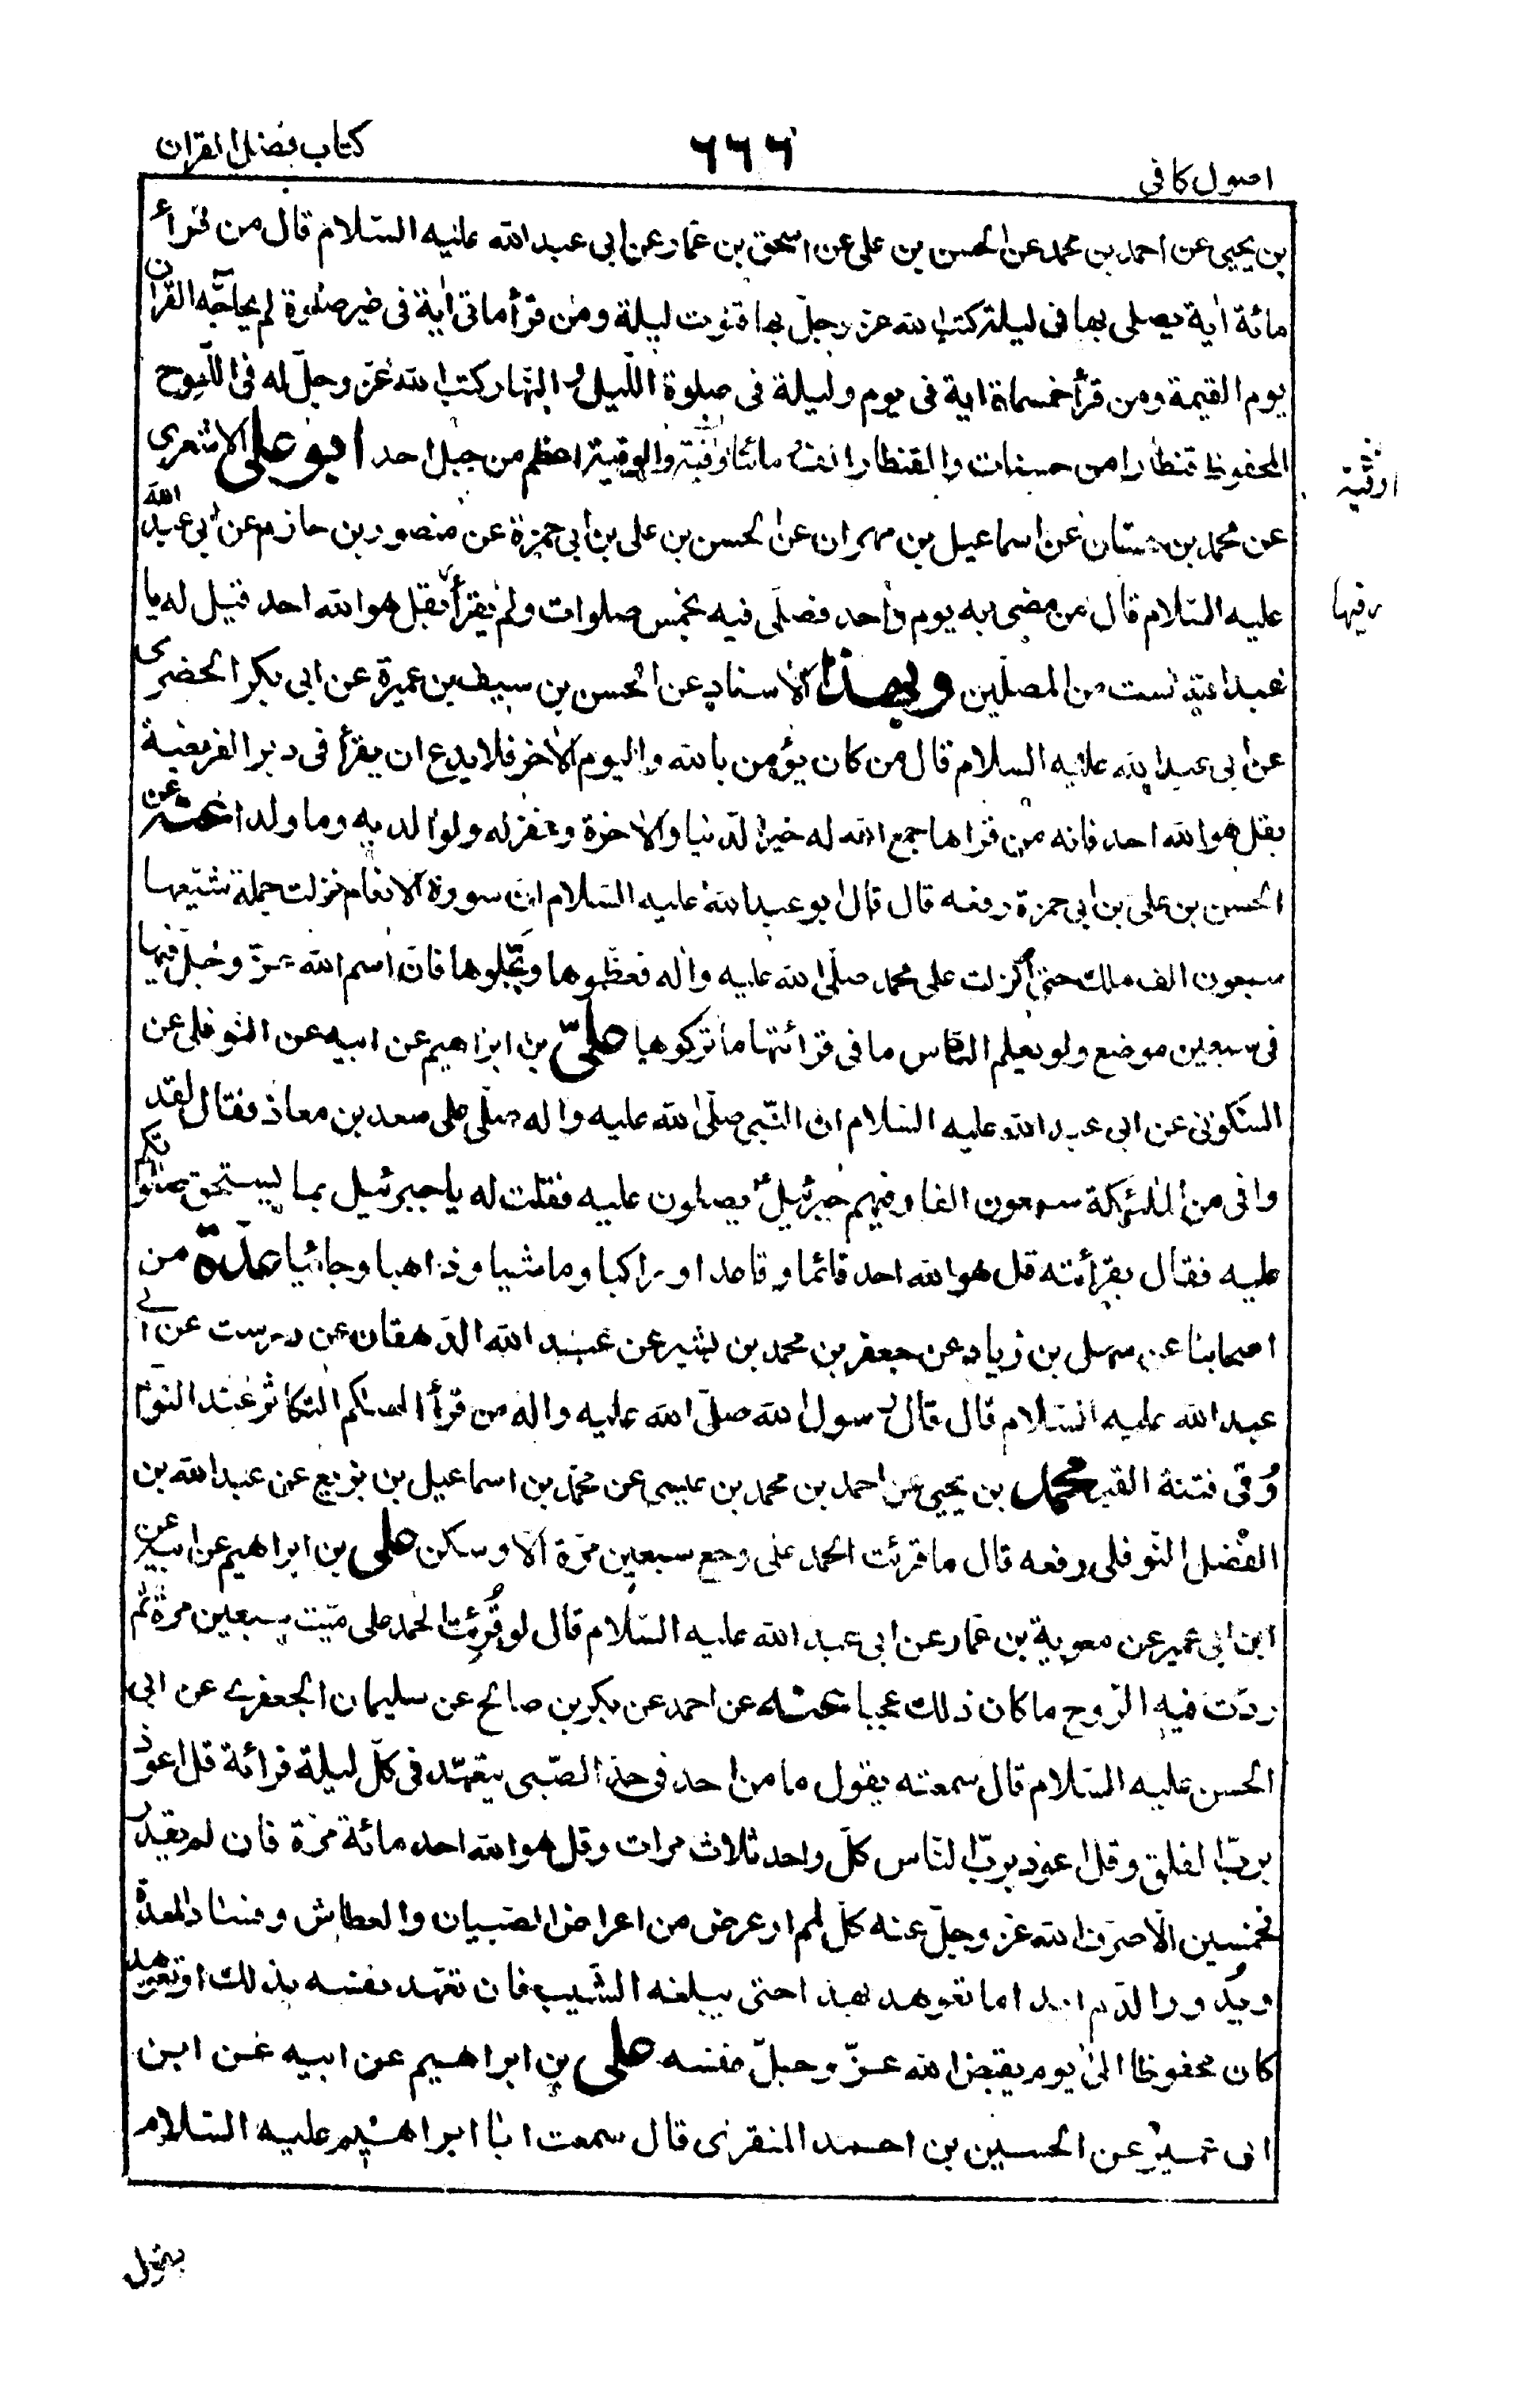 كتاب فضل القران
٦٦٦
اصول كافى
بن يحيى عن احمد بن محمد عن الحسن بن على عن اسحق بن عمّار عن ابى عبد الله عليه السّلام قال من قرأ
مائة اية يصلى بها فى ليلة كتب الله عز وجلّ بها قنوت ليلة ومن قرأ ماتى اية فى غير صلوة لم يحاجّه القران
يوم القيمة ومن قرأ خمسماة اية فى يوم وليلة فى صلوة اللّيل و النّهار كتب الله عزّ وجلّ له فى اللّوح
المحفوظ قنطارا من حسنات والقنطار الف مائتا وقية والوقية اعظم من جبل احد ابو على الاشعرى
اوقية
عن محمد بن حسّان عن اسماعيل بن مهران عن الحسن بن على بن ابى حمزة عن منصور بن حازم عن ابى عبد الله
عليه السّلام قال من مضى به يوم واحد فصلّى فيه بخمس صلوات ولم يقرأ بقل هو الله احد قيل له يا
عبد الله لست من المصلّين وبهذا الاسناد عن الحسن بن سيف بن عميرة عن ابى بكر الحضرمى
عن ابى عبد الله عليه السلام قال من كان يؤمن بالله واليوم الاخر فلا يدع ان يقرأ فى دبر الفريضة
بقل هو الله احد فانه من قراها جمع الله له خير الدّنيا والاخرة وغفر له ولوالديه وما ولدا عنه عن
الحسن بن على بن ابى حمزة رفعه قال قال ابو عبد الله عليه السّلام انّ سورة الانعام نزلت جملة شيّعها
سبعون الف ملك حتى انزلت على محمد صلّى الله عليه واله فعظّموها وبجّلوها فانّ اسم الله عزّ وجلّ فيها
فى سبعين موضع ولو يعلم النّاس ما فى قرائتها ما تركوها علىّ بن ابراهيم عن ابيه عن النوفلى عن
السّكونى عن ابى عبد الله عليه السّلام ان النّبى صلّى الله عليه واله صلّى على سعد بن معاذ فقال لقد
وافى من الملئكة سبعون الفا وفيهم جبرئيل ع يصلون عليه فقلت له يا جبرئيل بما يستحق صلوتكم
عليه فقال بقرأته قل هو الله احد قائما وقاعدا وراكبا وماشيا وذاهبا وجائيا عدّة من
اصحابنا عن سهل بن زياد عن جعفر بن محمد بن بشير عن عبيد الله الدّهقان عن درست عن ابى
عبد الله عليه السّلام قال قال رسول الله صلّى الله عليه واله من قرأ الهيكم التكاثر عند النّوم
وُقى فتنة القبر محمّد بن يحيى عن احمد بن محمد بن عيسى عن محمّد بن اسماعيل بن بزيع عن عبد الله بن
الفضل النّوفلى رفعه قال ما قرئت الحمد على وجع سبعين مرّة الّا وسكن على بن ابراهيم عن ابيه عن
ابن ابى عمير عن معوية بن عمّار عن ابى عبد الله عليه السّلام قال لو قُرِئت الحمد على ميّت سبعين مرّة ثم
ردّت فيه الرّوح ما كان ذلك عجبا عنه عن احمد عن بكر بن صالح عن سليمان الجعفرى عن ابى
الحسن عليه السّلام قال سمعته يقول ما من احد فى حدّ الصّبى يتعهّد فى كلّ ليلة قرائة قل اعوذ
بربّ الفلق وقل اعوذ بربّ النّاس كلّ واحد ثلاث مرات وقل هو الله احد مائة مرّة فان لم يقدر
فخمسين الّا صرف الله عزّ وجلّ عنه كلّ لمم او عرض من اعراض الصّبيان والعطاش وفساد المعدة
وبُدور الدّم ابدا ما تعوهد بهذا حتى يبلغه الشّيب فان تعهّد نفسه بذلك او تعوهد
كان محفوظا الى يوم يقبض الله عزّ وجلّ نفسه على بن ابراهيم عن ابيه عن ابن
ابى عمير عن الحسين بن احمد المنقرى قال سمعت ابا ابراهيم عليه السّلام
يقول